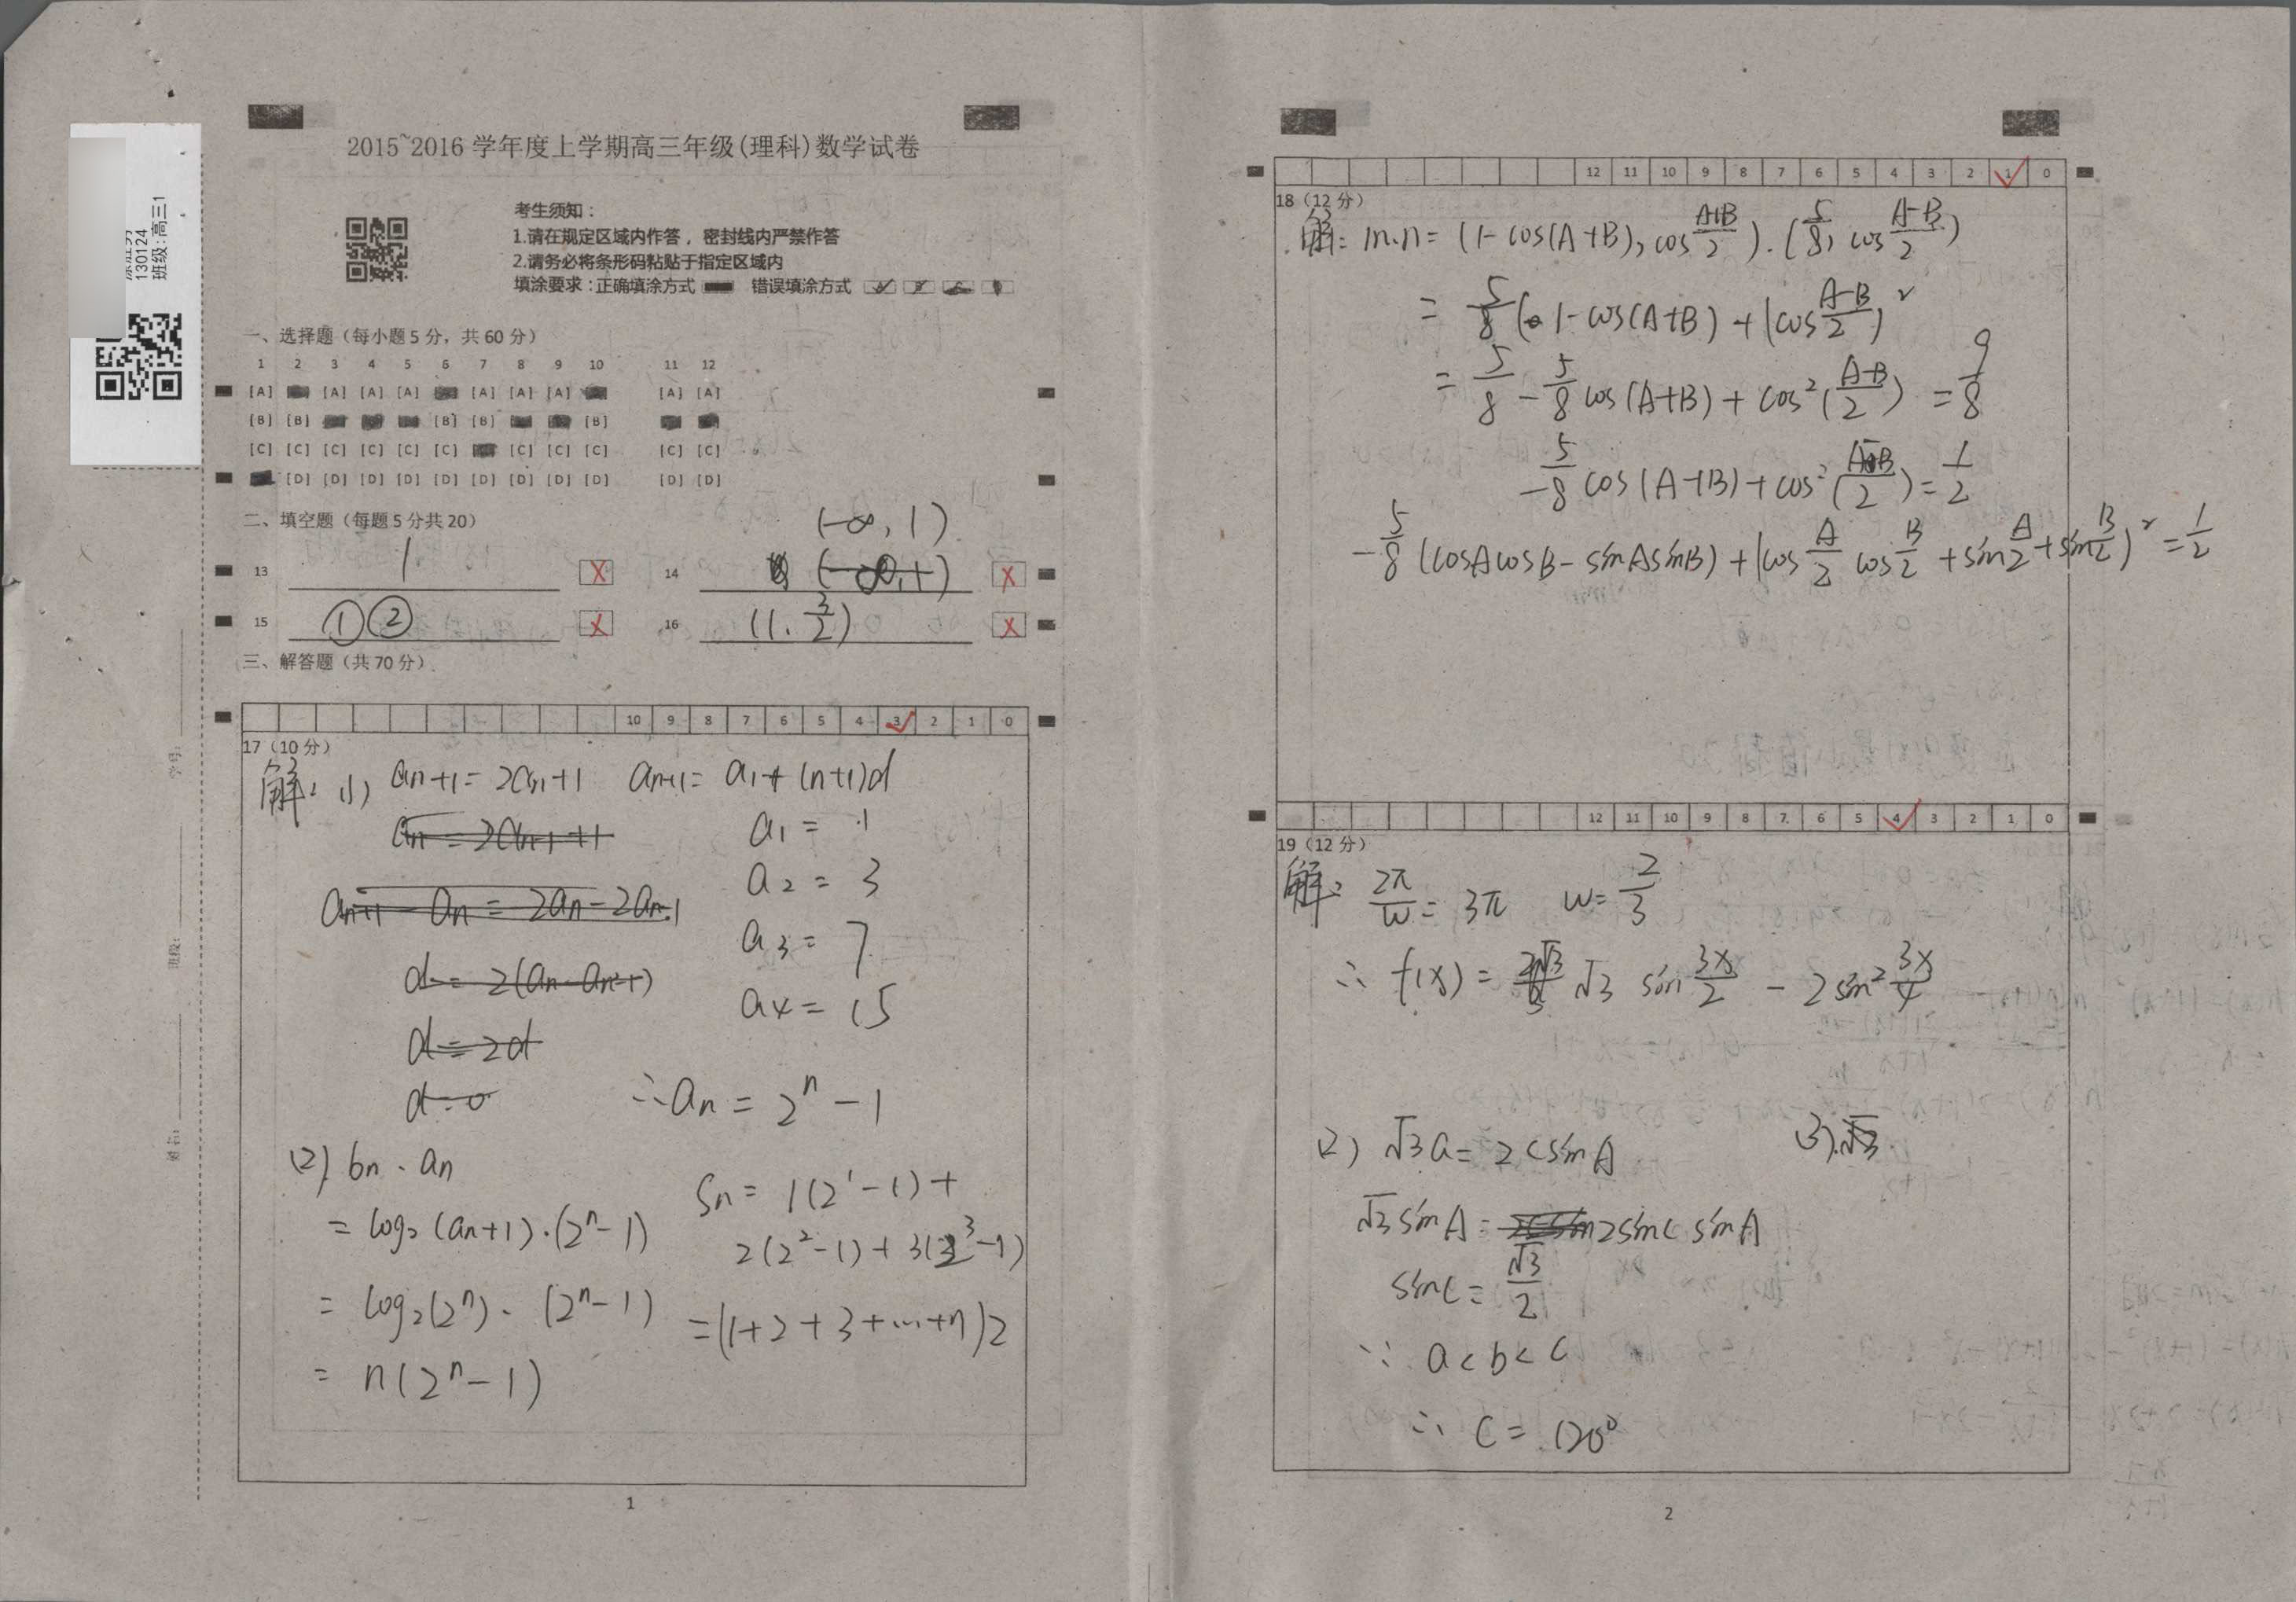 130124
班级:高三1
学号:
班级:
姓名:
2015~2016 学年度上学期高三年级(理科)数学试卷
考生须知:
1.请在规定区域内作答,密封线内严禁作答
2.请务必将条形码粘贴于指定区域内
填涂要求:正确填涂方式 错误填涂方式
一、选择题(每小题5分,共60分)
1 2 3 4 5 6 7 8 9 10 11 12
[A] [A] [A] [A] [A] [A] [A] [A] [A]
[B] [B] [B] [B] [B]
[C] [C] [C] [C] [C] [C] [C] [C] [C] [C] [C]
[D] [D] [D] [D] [D] [D] [D] [D] [D] [D] [D]
二、填空题(每题5分共20)
(-∞, 1)
13 1 X 14 (-∞,1) X
15 ①② X 16 (1. 3/2) X
三、解答题(共70分)
10 9 8 7 6 5 4 3 2 1 0
17(10分)
解: (1) an+1 = 2an+1 an+1 = a1+(n+1)d
an = 2an-1+1 a1 = 1
a2 = 3
an+1 - an = 2an - 2an-1
a3 = 7
d = 2(an-an-1)
a4 = 15
d = 2d
d = 0 ∴ an = 2^n - 1
(2) bn · an
Sn = 1(2^1-1)+
= log2(an+1)·(2^n-1)
2(2^2-1)+3(2^3-1)
= log2(2^n)·(2^n-1)
=(1+2+3+…+n)2
= n(2^n-1)
1
12 11 10 9 8 7 6 5 4 3 2 1 0
18(12分)
解: m·n = (1-cos(A+B), cos (A+B)/2)·(5/8, cos (A-B)/2)
= 5/8(1-cos(A+B)+(cos (A-B)/2)²
= 5/8 - 5/8 cos(A+B)+cos²((A-B)/2) = 9/8
-5/8 cos(A+B)+cos²((A-B)/2) = 1/2
-5/8 (cosAcosB-sinAsinB)+(cos A/2 cos B/2 + sin A/2 + sin B/2)² = 1/2
12 11 10 9 8 7 6 5 4 3 2 1 0
19(12分)
解: 2π/w = 3π w = 2/3
∴ f(x) = √3 sin 3x/2 - 2sin² 3x/4
(2) √3a = 2csinA (3).√3
√3sinA = 2sinC sinA
sinC = √3/2
∵ a<b<c
∴ C = 120°
2